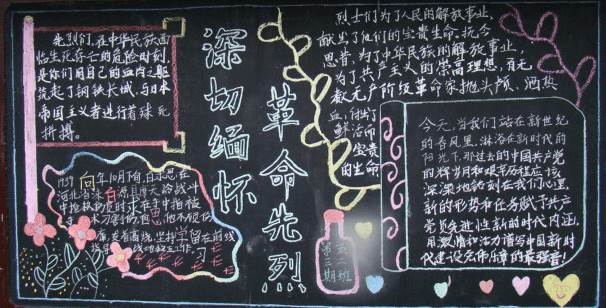 先烈们,在中华民族面
临生死存亡的危险时刻,
是你们用自己的血肉之躯
筑起了钢铁长城,与日本
帝国主义者进行着殊死
拼搏。
深切缅怀
革命先烈
烈士们为了人民的解放事业,
献出了他们的宝贵生命。抚今
思昔,为了中华民族的解放事业,
为了共产主义的崇高理想,有无
数无产阶级革命家抛头颅、洒热
血,付出了
鲜活而
宝贵
的生命
1939年10月下旬,白求恩在
河北涞源县摩天岭战斗
中抢救伤员时
今天,当我们站在新世纪
的春风里,沐浴在新时代的
阳光下,那过去的中国共产党
的辉煌岁月和艰辛历程应该
深深地铭刻在我们心里,
新的形势和任务赋予共产
党员先进性新的时代内涵,
用激情和活力谱写中国新时
代建设宏伟乐章的最强音!
向
白
求
恩
学
第二期
五二班